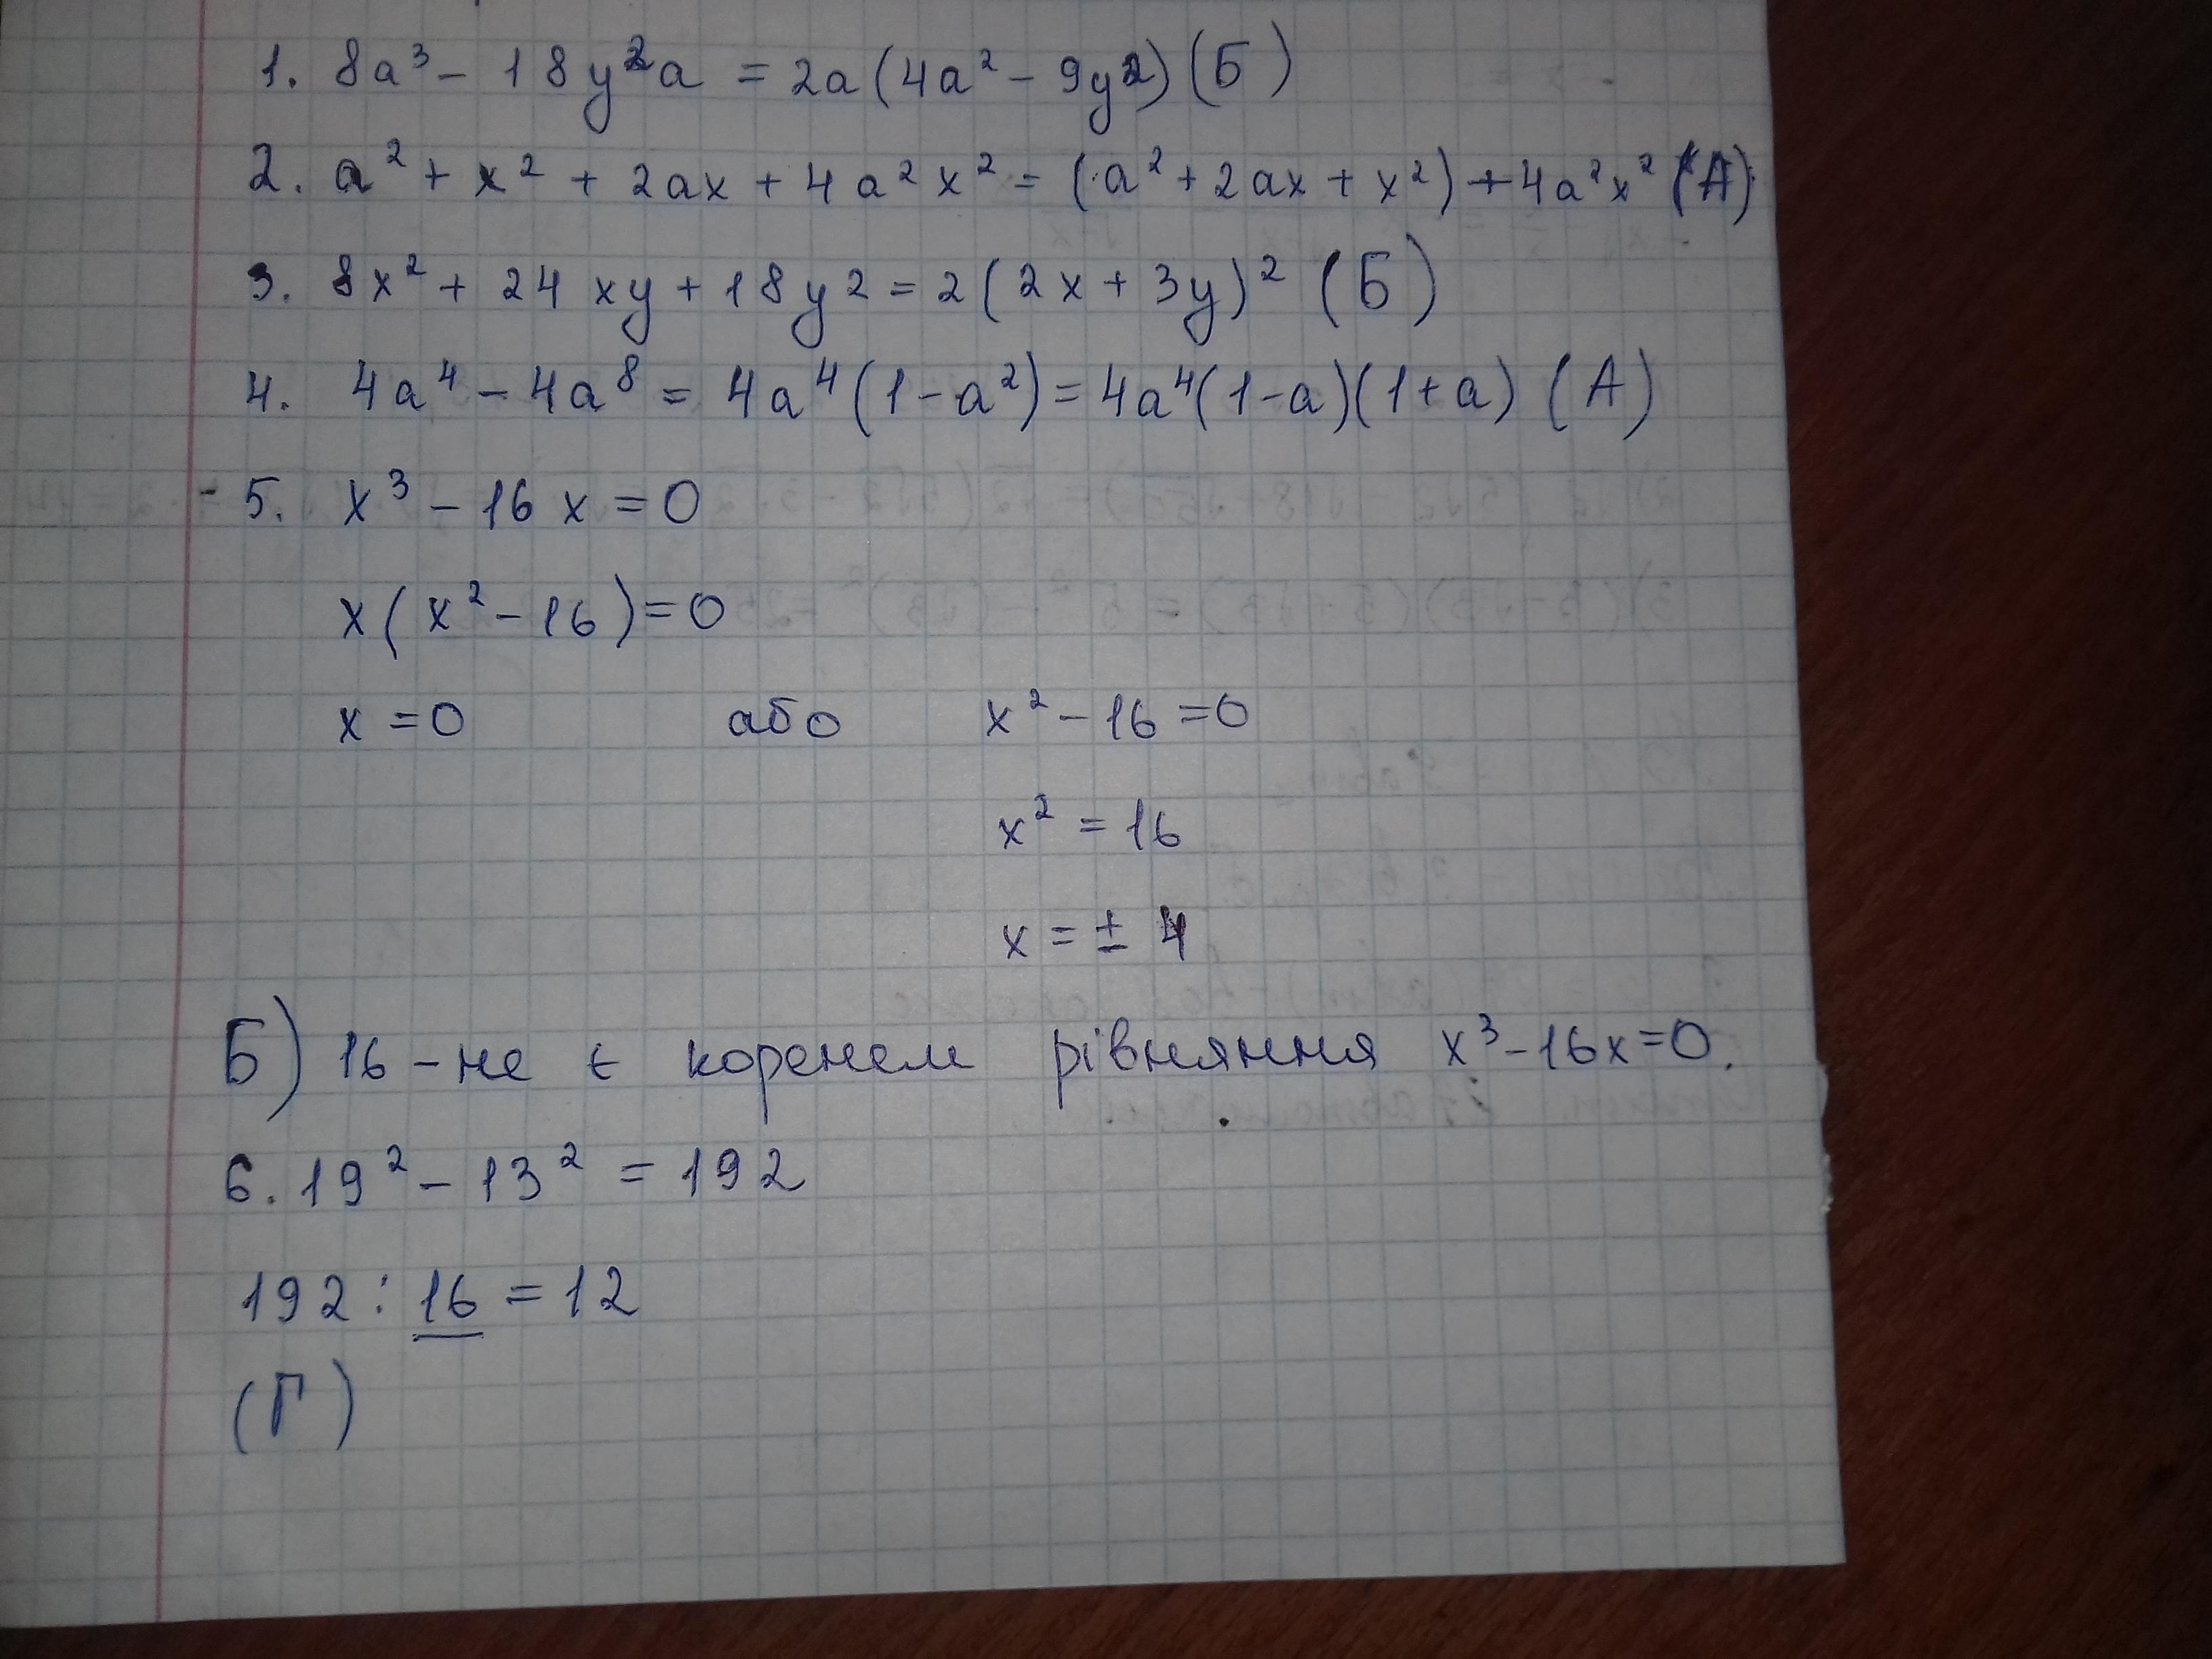 1. 8a³ - 18y²a = 2a(4a² - 9y²) (Б)
2. a² + x² + 2ax + 4a²x² = (a² + 2ax + x²) + 4a²x² (А)
3. 8x² + 24xy + 18y² = 2(2x + 3y)² (Б)
4. 4a⁴ - 4a⁸ = 4a⁴(1 - a²) = 4a⁴(1-a)(1+a) (А)
5. x³ - 16x = 0
x(x² - 16) = 0
x = 0 або x² - 16 = 0
x² = 16
x = ± 4
Б) 16 - не є коренем рівняння x³ - 16x = 0.
6. 19² - 13² = 192
192 : 16 = 12
(Г)